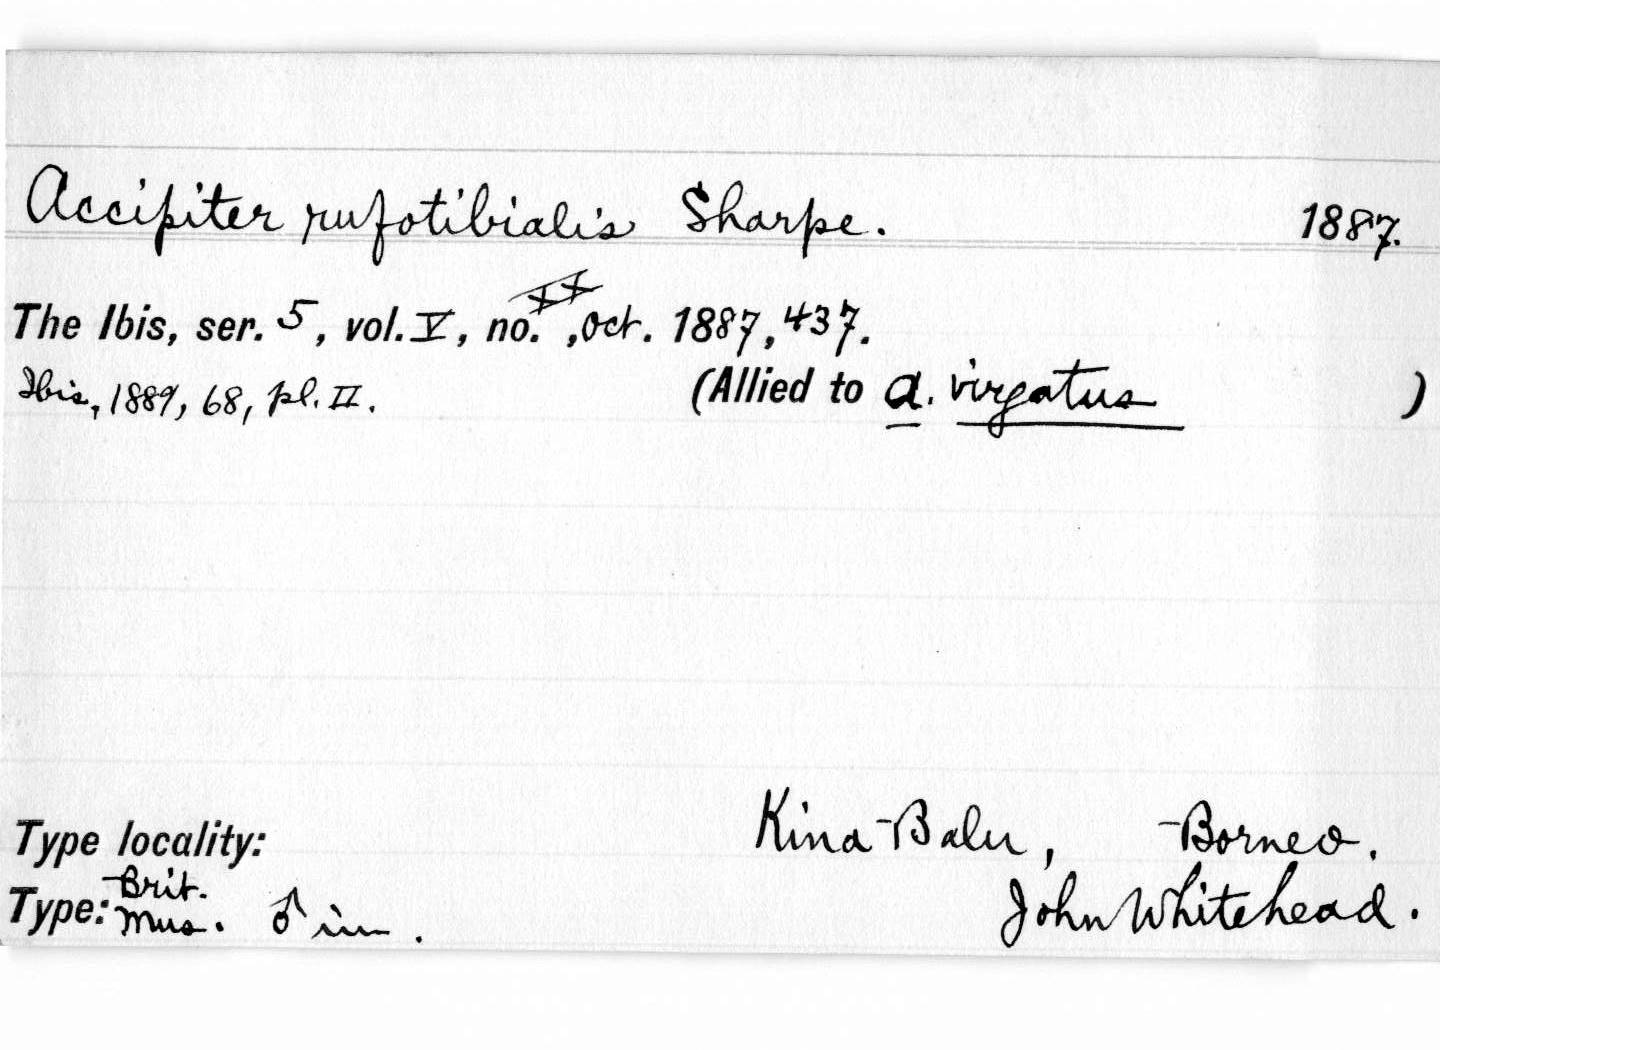 Accipiter rufotibialis Sharpe. 1887.
The Ibis, ser. 5, vol. V, no. XX, Oct. 1887, 437.
Ibis, 1889, 68, pl. II. (Allied to A. virgatus )
Type locality: Kina Balu, Borneo.
Type: Brit. Mus. ♂ im. John Whitehead.